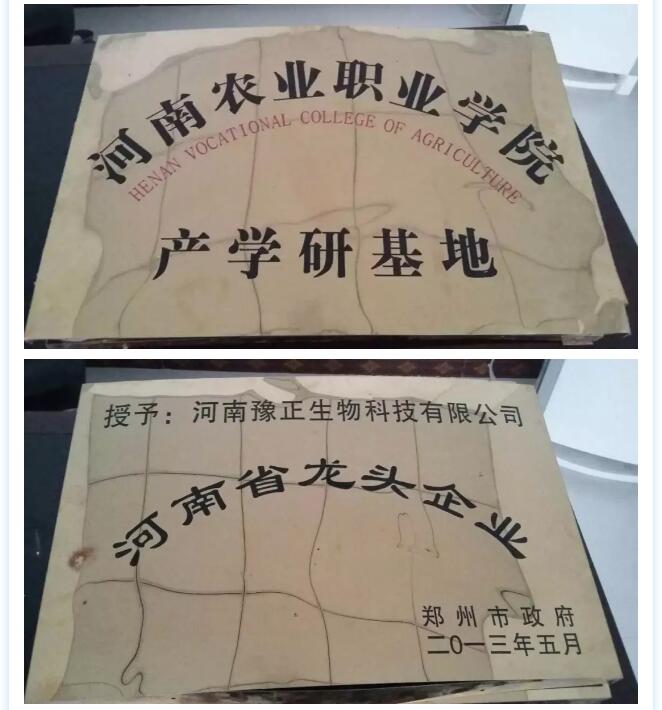 河南农业职业学院
HENAN VOCATIONAL COLLEGE OF AGRICULTURE
产学研基地
授予：河南豫正生物科技有限公司
河南省龙头企业
郑州市政府
二〇一三年五月